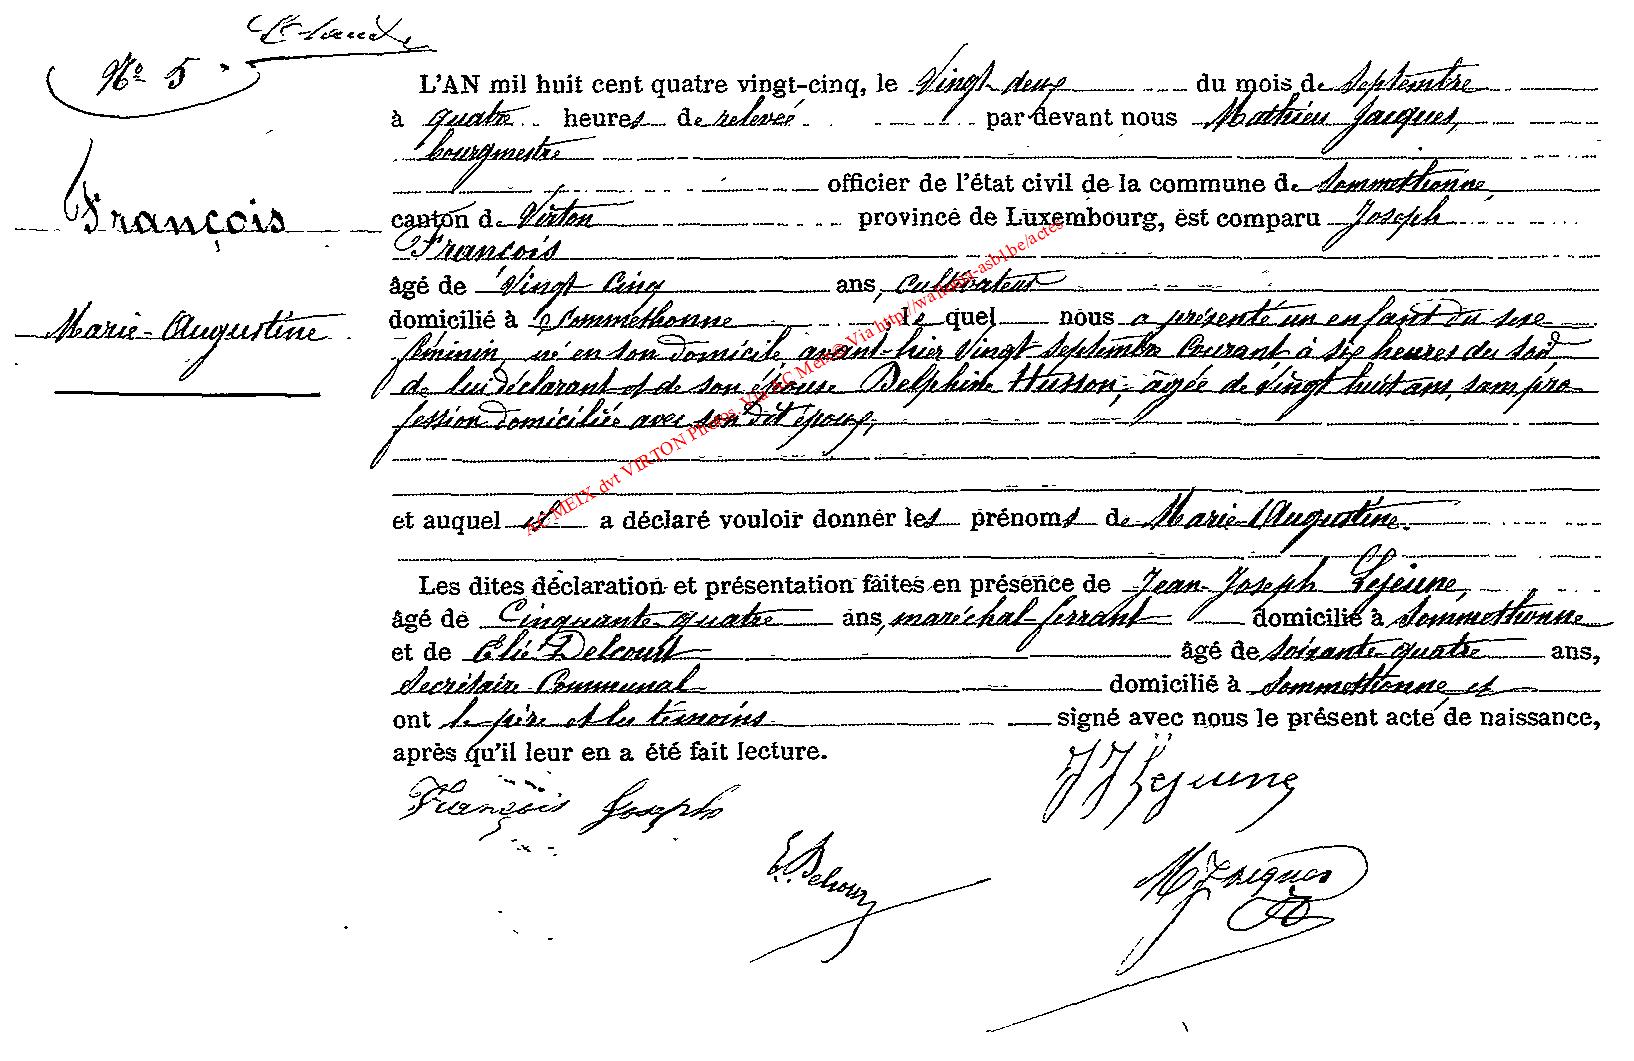 Nº 5
François
Marie-Augustine
L'AN mil huit cent quatre vingt-cinq, le Vingt-deux du mois de Septembre
à quatre heures de relevée par devant nous Mathieu Jacques,
bourgmestre
officier de l'état civil de la commune de Sommethonne,
canton de Virton province de Luxembourg, est comparu Joseph
François
âgé de Vingt Cinq ans, cultivateur
domicilié à Sommethonne le quel nous a présenté un enfant du sexe
féminin, né en son domicile avant-hier Vingt Septembre Courant à six heures du soir
de lui déclarant et de son épouse Delphine Husson, âgée de Vingt huit ans, sans pro
fession domiciliée avec son dit époux,
et auquel il a déclaré vouloir donner les prénoms de Marie-Augustine.
Les dites déclaration et présentation faites en présence de Jean-Joseph Lejeune,
âgé de Cinquante-quatre ans, maréchal-ferrant domicilié à Sommethonne
et de Elie Delcourt âgé de soixante-quatre ans,
Secrétaire Communal domicilié à Sommethonne, et
ont le père et les témoins signé avec nous le présent acte de naissance,
après qu'il leur en a été fait lecture.
François Joseph
JJ Lejeune
M Jacques
AC MEIX dvt VIRTON